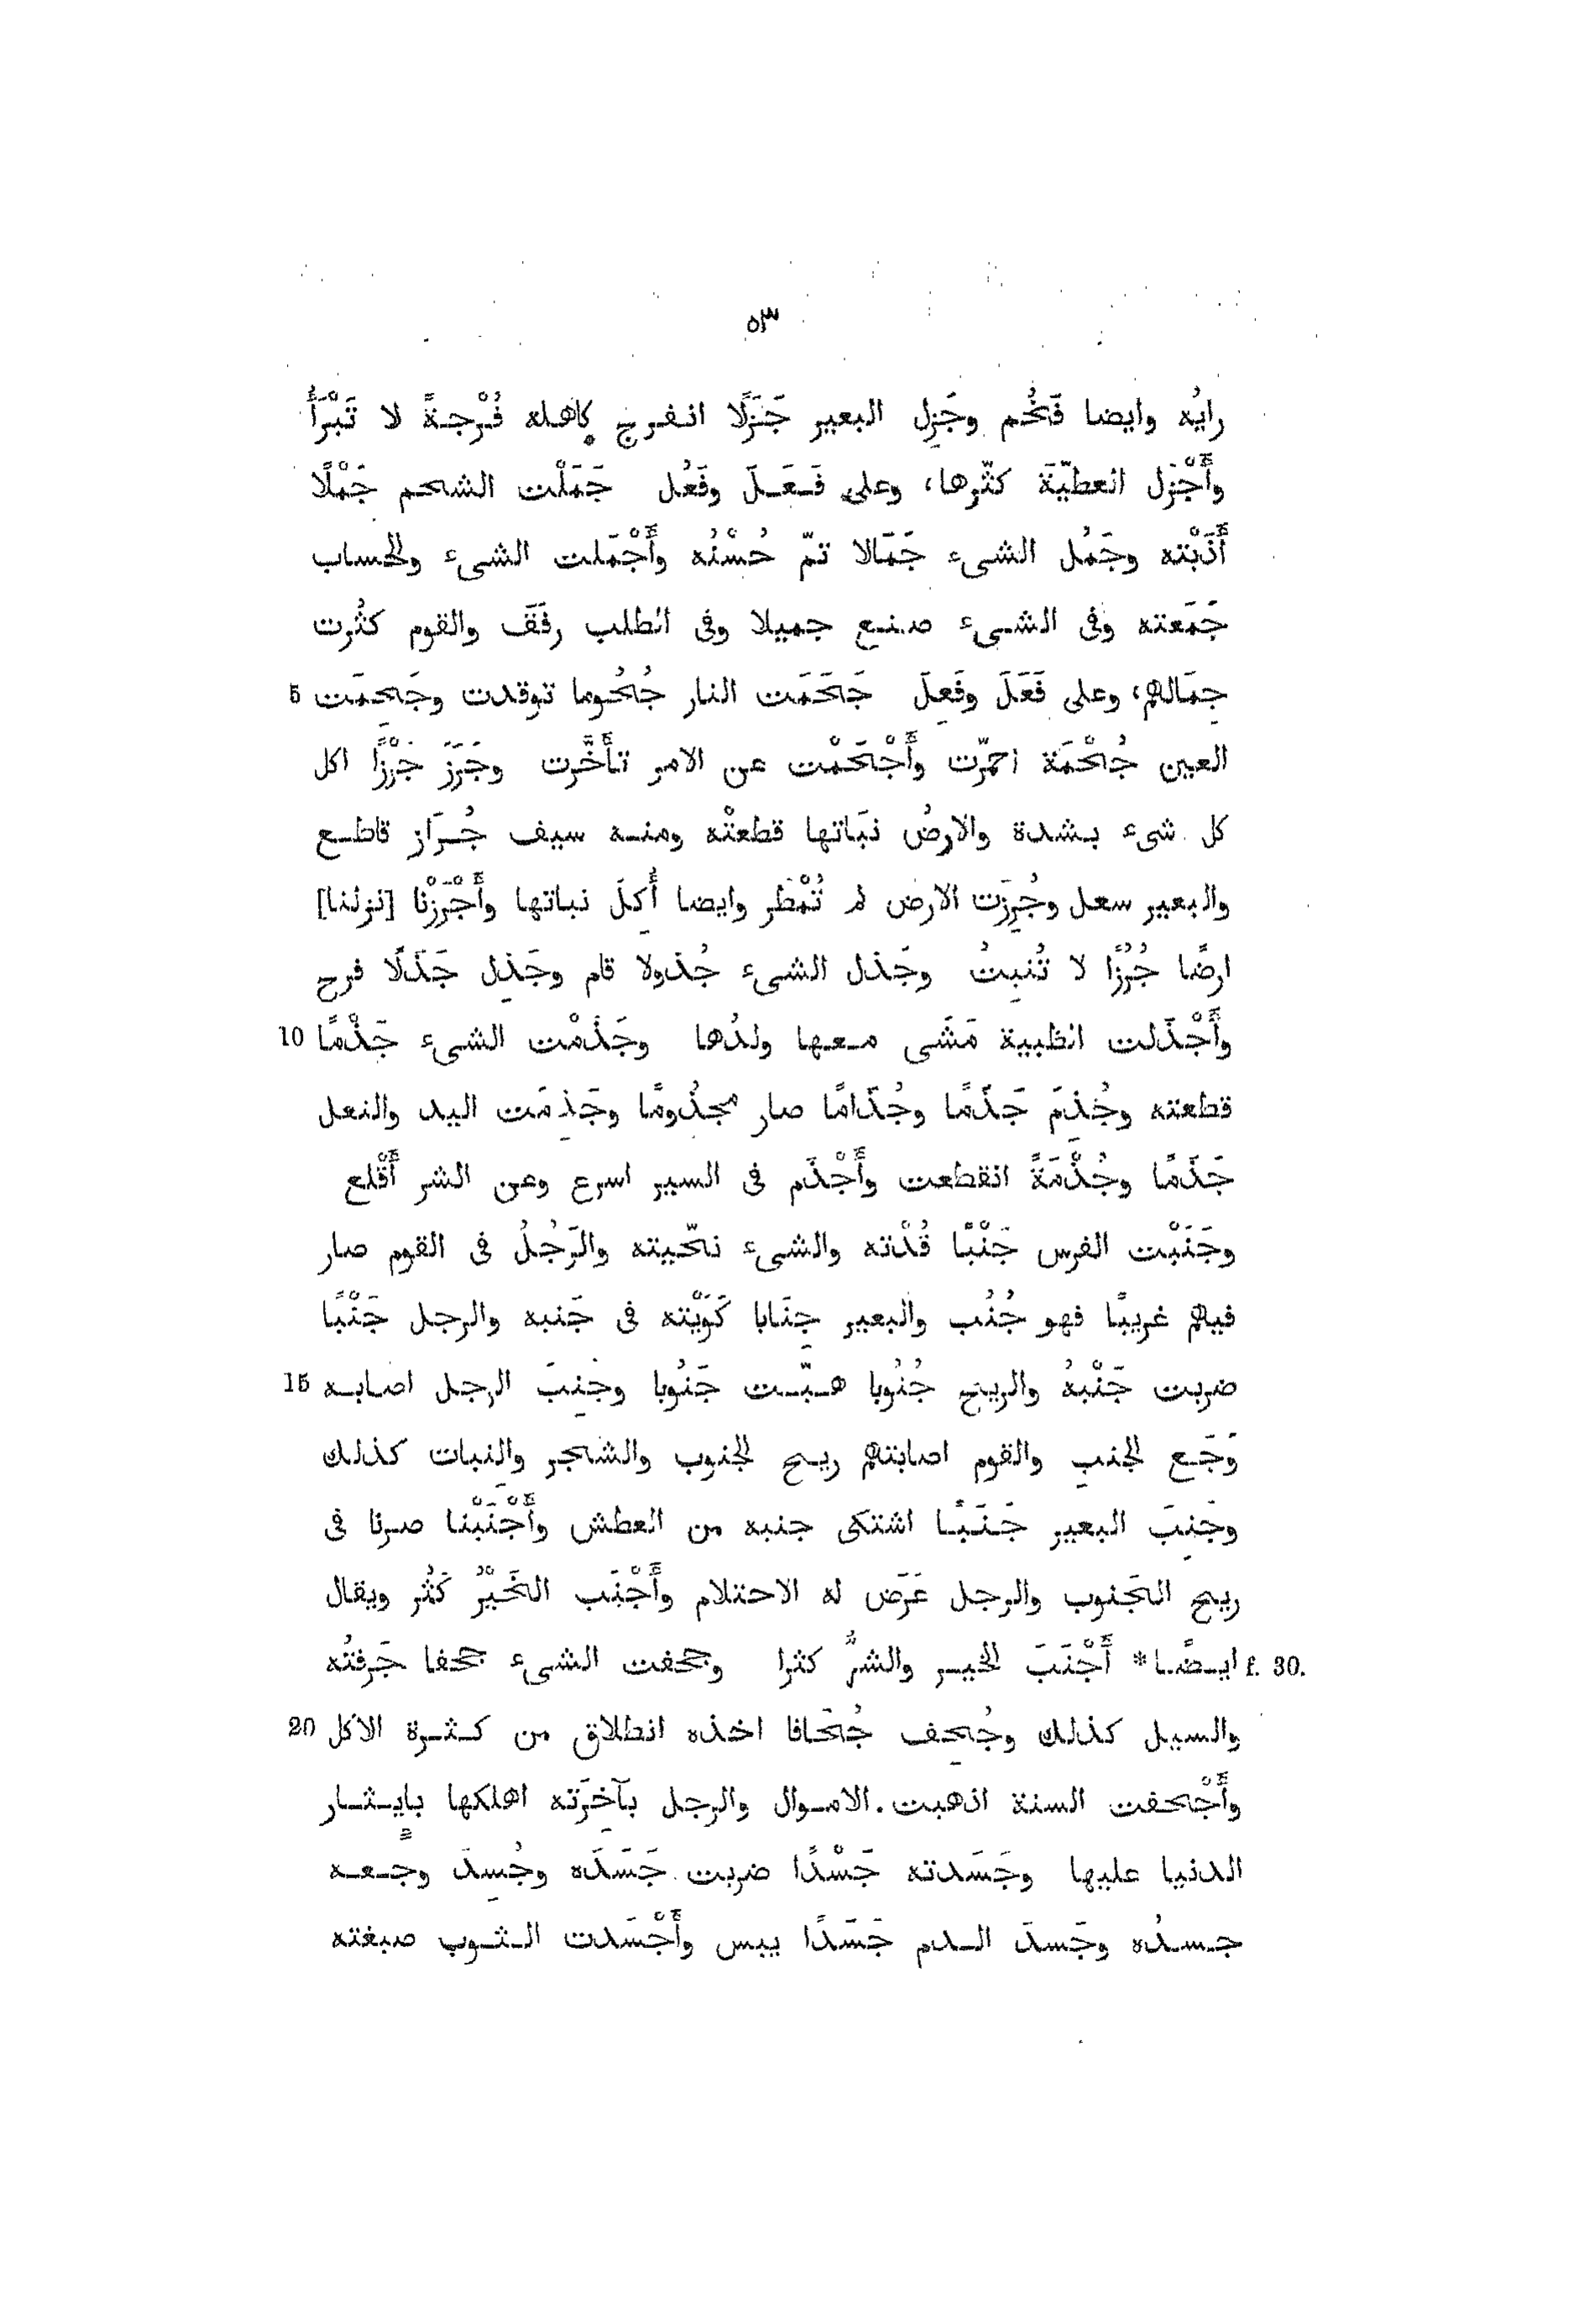 ٥٣
رايُه وايضا فَخُم وجَزِل البعير جَزَلًا انفرج كاهله فُرْجةً لا تَبْرَأُ
وأَجْزَل العطيّةَ كثّرها، وعلى فَعَلَ وفَعُل جَمَلْت الشحم جَمْلًا
أَذَبْته وجَمُل الشىء جَمَالا تمّ حُسْنُه وأَجْمَلت الشىء والحساب
جَمَعته وفى الشىء صنع جميلا وفى الطلب رفَقَ والقوم كثُرت
جِمَالهم، وعلى فَعَلَ وفَعِلَ جَحَمَت النار جُحُوما توقدت وجَحِمَت 5
العين جُحْمَة احمّرت وأَجْحَمْت عن الامر تأَخَّرت وجَرَزَ جَرْزًا اكل
كل شىء بشدة والارضُ نبَاتها قطعتْه ومنه سيف جُرَاز قاطع
والبعير سعل وجُرِزَت الارض لم تُمْطَر وايضا أُكِلَ نباتها وأَجْرَزْنا [نزلنا]
ارضًا جُرُزًا لا تُنبِتُ وجَذل الشىء جُذولا قام وجَذِل جَذَلًا فرح
وأَجْذَلت الظبية مَشَى معها ولدُها وجَذَمْت الشىء جَذْمًا 10
قطعته وجُذِمَ جَذَمًا وجُذَامًا صار مجذُومًا وجَذِمَت اليد والنعل
جَذَمًا وجُذْمَةً انقطعت وأَجْذَم فى السير اسرع وعن الشر أَقْلع
وجَنَبْت الفرس جَنْبًا قُدْته والشىء نحّيته والرَجُلُ فى القوم صار
فيهم غريبًا فهو جُنُب والبعير جِنَابا كَوَيْته فى جَنبه والرجل جَنْبًا
ضربت جَنْبهُ والريح جُنُوبا هبّت جَنُوبا وجَنِبَ الرجل اصابه 15
وَجَع الجنبِ والقوم اصابتهم ريح الجنوب والشجر والنبات كذلك
وجَنِبَ البعير جَنَبًا اشتكى جنبه من العطش وأَجْنَبْنا صرنا فى
ريح الجَنوب والرجل عَرَض له الاحتلام وأَجْنَب الخَيْرُ كَثُر ويقال
ايضًا* أَجْنَبَ الخير والشرُّ كثرا وجحفت الشىء جحفا جَرفتُه f. 30.
والسيل كذلك وجُحِف جُحَافا اخذه انطلاق من كثرة الاكل 20
وأَجْحفت السنة اذهبت الاموال والرجل بآخِرَته اهلكها بإيثار
الدنيا عليها وجَسَدته جَسْدًا ضربت جَسَدَه وجُسِدَ وجَعه
جسدُه وجَسدَ الدم جَسَدًا يبس وأَجْسَدت الثوب صبغته